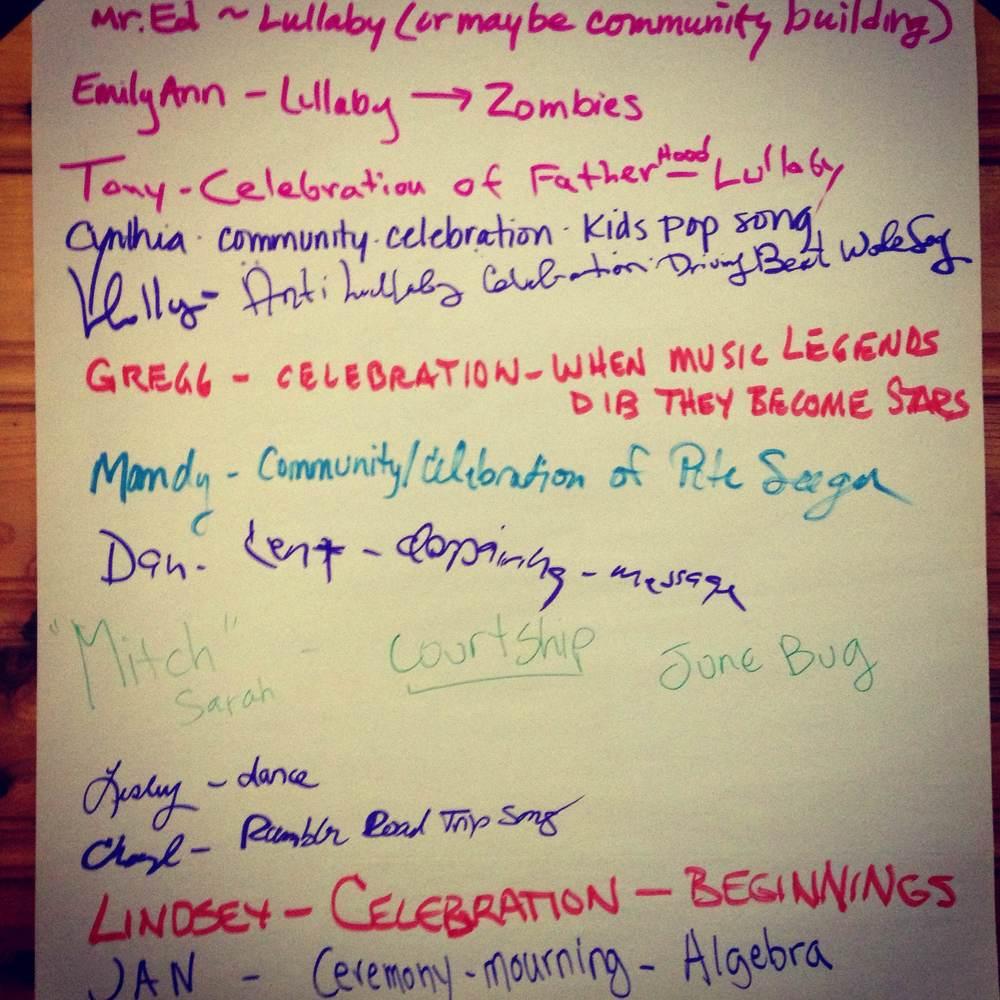 Mr. Ed ~ Lullaby (or maybe community building)
EmilyAnn - Lullaby → Zombies
Tony - Celebration of FatherHood Lullaby
Cynthia · community · celebration · Kids pop song
Anti Lullaby Celebration · Driving Beat Song
GREGG - CELEBRATION - WHEN MUSIC LEGENDS
DIB THEY BECOME STARS
Mandy - Community/Celebration of Pete Seeger
Dan - - message
"Mitch" - Courtship June Bug
Sarah
Lesley - dance
Cheryl - Rambler Road Trip Song
LINDSEY - CELEBRATION - BEGINNINGS
JAN - Ceremony - mourning - Algebra